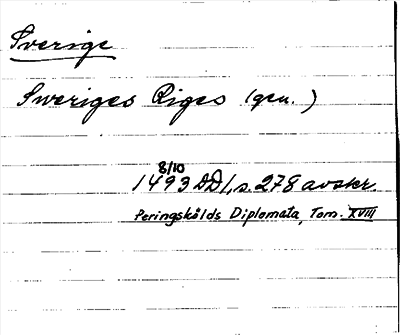 Sverige
Sweriges Riges (gen. )
8/10
1493 DD1, s. 278 avskr.
Peringskölds Diplomata, Tom. XVIII